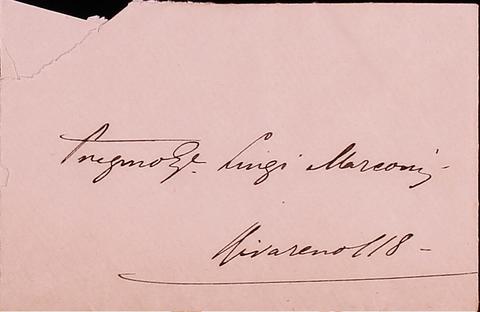 Pregmo Sr. Luigi Marconi -
Rivareno 118 -